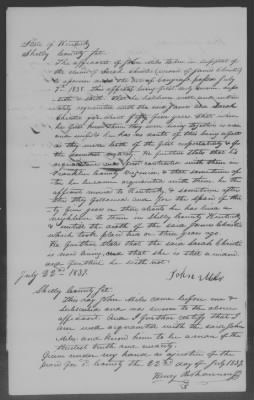 State of Kentucky
Shelby County Sct.
The affidavit of John Miles taken in support of
the claim of Sarah Christie (widow of James Christie)
to a pension under the act of Congress passed July
7th 1838. This affiant being first duly sworn depo-
seth & saith That he hath been well and intim-
ately acquainted with the said James and Sarah
Christie for about fifty five years. That when
he first knew them they were living together as man
and wife & he has no doubt of this being
as they were both of the first respectability of
the country. He further states that his
acquaintance first commenced with them in
Franklin County Virginia, & that sometime af-
ter he became acquainted with them the
affiant moved to Kentucky & sometime after
this they followed and for the space of thir-
ty five years or over affiant has lived a
neighbor to them in Shelby County Kentucky
& until the death of the said James Christie
which took place two or three years ago.
He further states that the said Sarah Christie
is now living and that she is still a widow
and further he saith not.
July 22nd 1839. John Miles
Shelby County Sct.
This day John Miles came before me &
subscribed and was sworn to the above
affidavit. And I further certify that I
am well acquainted with the said John
Miles and know him to be a man of the
strictest truth and veracity.
Given under my hand as a justice of the
peace for said County the 22nd day of July 1839.
Henry